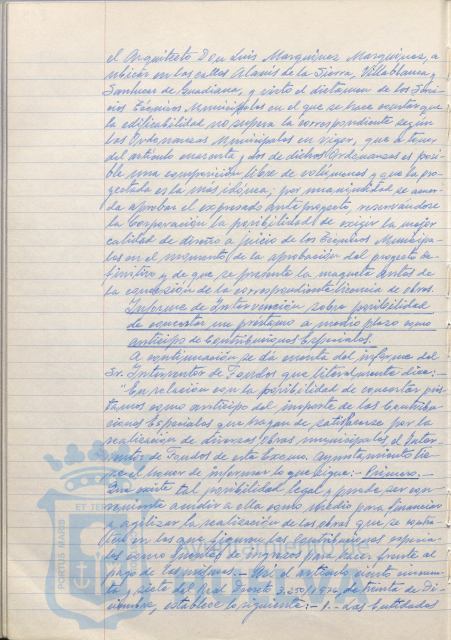 el Arquitecto Don Luis Marquinez Marquinez, a
ubicar en las calles Alanis de la Sierra, Villablanca y
Sanlucar de Guadiana, y visto el dictamen de los Servi-
cios Técnicos Municipales en el que se hace constar que
la edificabilidad no supera la correspondiente según
las Ordenanzas Municipales en vigor, que a tenor
del artículo cuarenta y dos de dichas Ordenanzas es posi-
ble una composición libre de volúmenes y que la pro-
yectada es la más idónea; por unanimidad se acuer-
da aprobar el expresado anteproyecto, reservándose
la Corporación la posibilidad de exigir la mejor
calidad de diseño a juicio de los Técnicos Municipa-
les en el momento de la aprobación del proyecto de-
finitivo y de que se presente la maqueta antes de
la concesión de la correspondiente licencia de obras.
Informe de Intervención sobre posibilidad
de concertar un préstamo a medio plazo como
anticipo de Contribuciones Especiales.
A continuación se da cuenta del informe del
Sr. Interventor de Fondos que literalmente dice:
"En relación con la posibilidad de concertar prés-
tamos como anticipo del importe de las Contribu-
ciones Especiales que hayan de satisfacerse por la
realización de diversas obras municipales el Inter-
ventor de Fondos de este Excmo. Ayuntamiento tie-
ne el honor de informar lo que sigue: - Primero. -
Que existe tal posibilidad legal y puede ser con-
veniente acudir a ella como medio para financiar
y agilizar la realización de las obras que se
en las que figuran las Contribuciones especia-
les como fuentes de ingresos para hacer frente al
pago de las mismas. - Así el artículo ciento cincuen-
ta y siete del Real Decreto 3.250/1976, de treinta de Di-
ciembre, establece lo siguiente: - 1. - Las Entidades
ET TERRA
PORTUS MARIS